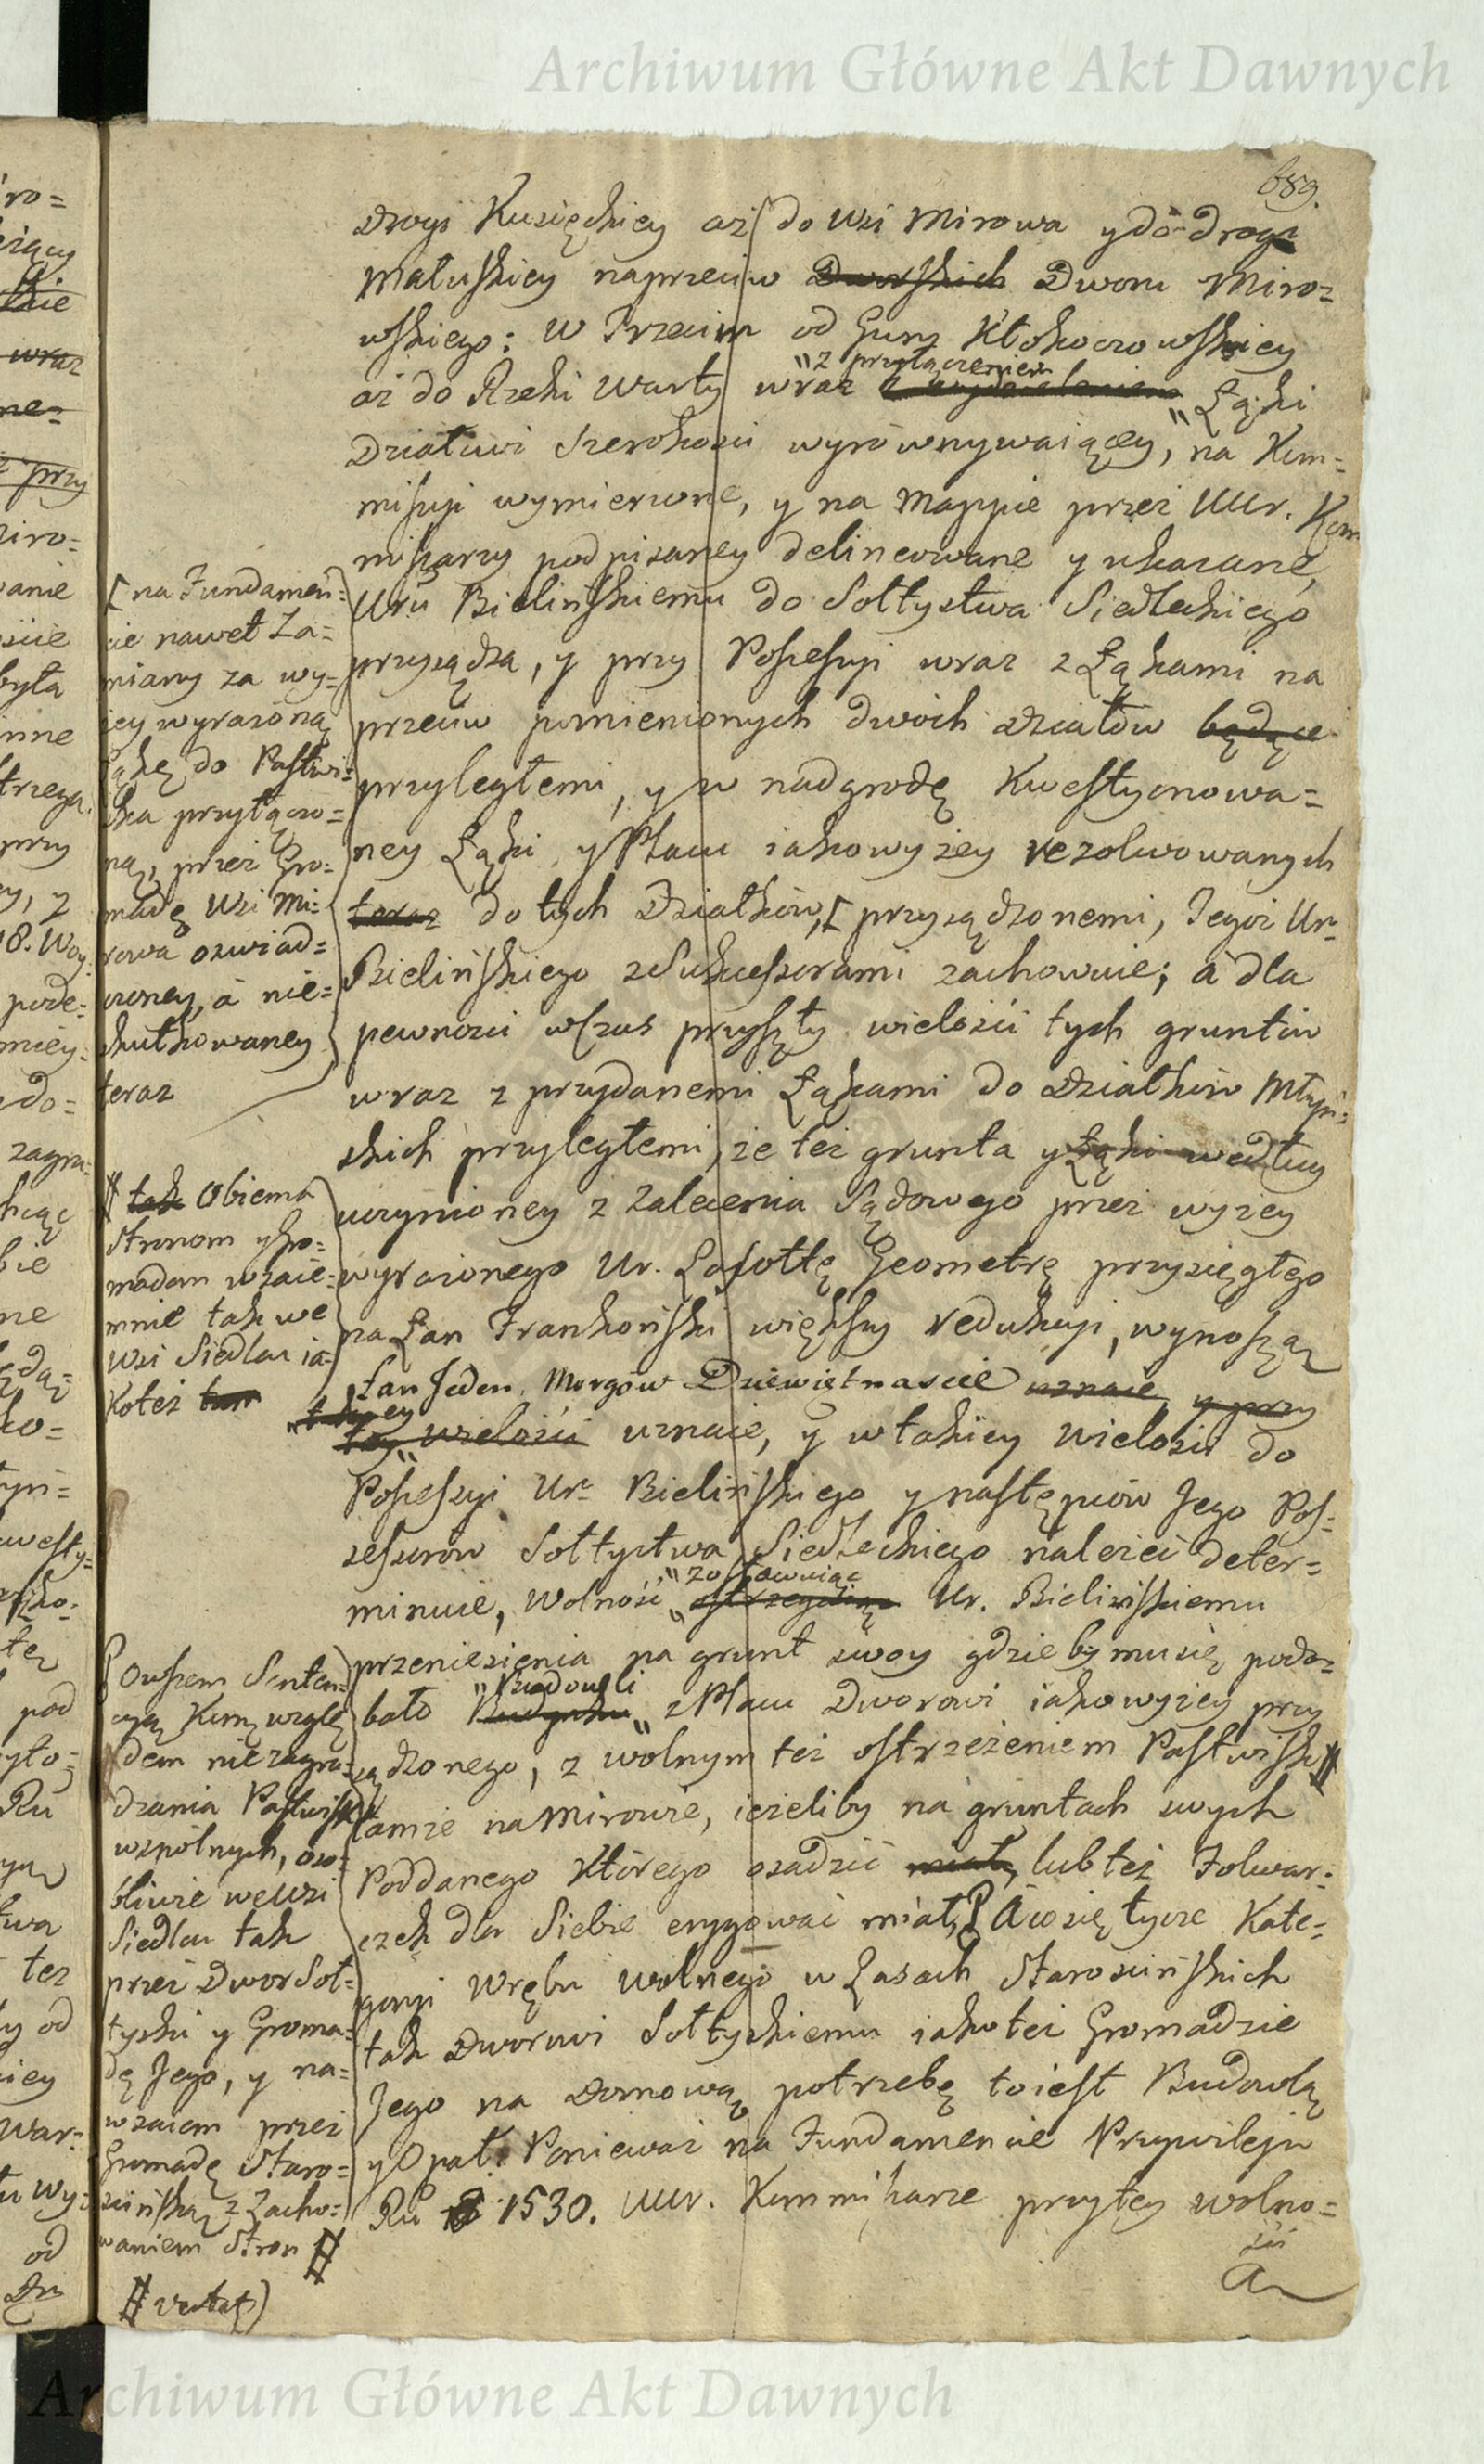 Archiwum Główne Akt Dawnych
689.
Drogi Kusięckiey aż do Wsi Mirowa y do drogi
Maluskiey naprzeciw Dworskich Dworu Miro=
wskiego: W Trzecim od Gury Kłokoczowskiey
"z przyłączeniem
aż do Rzeki Warty wraz " Łąki
Działowi Szerokosci wyrównywaiącey, na Kom=
missyi wymierzone, y na Mappie przez UUr. Kom
missarzy podpisaney delineowane y ukazane,
Uru Bielińskiemu do Sołtystwa Siedleckiego
przysądza, y przy Possessyi wraz z Łąkami na
przeciw pomienionych dwóch Działów będące
przyległemi, y w nadgrodę Kwestyonowa=
ney Łąki y Placu iakowyżey rezolwowanych
teraz do tych Działków, [ przysądzonemi, Tegoż Ur
Bielińskiego z Sukcessorami zachowuie; á dla
pewnosci wczas przyszły wielości tych gruntów
wraz z przydanemi Łąkami do Działków Młyń=
skich przyległemi, że też grunta y Łąki według
uczynioney z Zalecenia Sądowego przez wyżey
wyrażonego Ur. Lasottę Geometrę przysięgłego
na Łan Frankoński większy redukcyi, wynoszą
Łan Jeden, Morgów Dziewiętnascie uznaie, y przy
"takiey
tey" wielości uznaie, y w takiey wielości do
Possessyi Ur Bielińskiego y następców Jego Pos=
sessorów Sołtystwa Siedleckiego należeć deter=
"zostawuiąc
minuie, Wolność " ostrzegaiąc Ur. Bielińskiemu
przeniesienia na grunt swoy gdzieby mu się podo=
"Budowli
bało Budynku " z Placu Dworowi iakowyżey przy
sądzonego, z wolnym też ostrzeżeniem Pastwisk #
tamże na Mirowie, ieżeliby na gruntach swych
Poddanego którego osadzić miał, lub też Folwar=
czek dla Siebie erygować miał, A co się tycze Kate=
goryi Wrębu wolnego w Lasach Starościńskich
tak Dworowi Sołtyskiemu iakoteż Gromadzie
Jego na Domową potrzebę to iest Budowlą
y Opał: Ponieważ na Fundamencie Przywileju
Ru 1530. UUr. Kommissarze przy tey wolno=
ści
[ na Fundamen=
cie nawet Za=
miany za wy=
żey wyrażoną
Łąkę do Pastwi=
ska przyłączo=
ną, przez Gro=
madę Wsi Mi=
rowa oswiad=
czoney, á nie=
skutkowaney
teraz
# tak Obiema
Stronom y Gro=
madom wzaie=
mnie tak we
Wsi Siedlcu ia=
koteż tam
Owszem Senten=
cyą Kmsą wzglę
dem niezagra=
dzania Pastwisk
wspólnych, oso=
bliwie we Wsi
Siedlcu tak
przez Dwór Soł=
tyski y Groma=
dę Jego, y na=
wzaiem przez
Gromadę Staro=
ścińską z Zacho=
waniem Stron #
# vertat)
Archiwum Główne Akt Dawnych